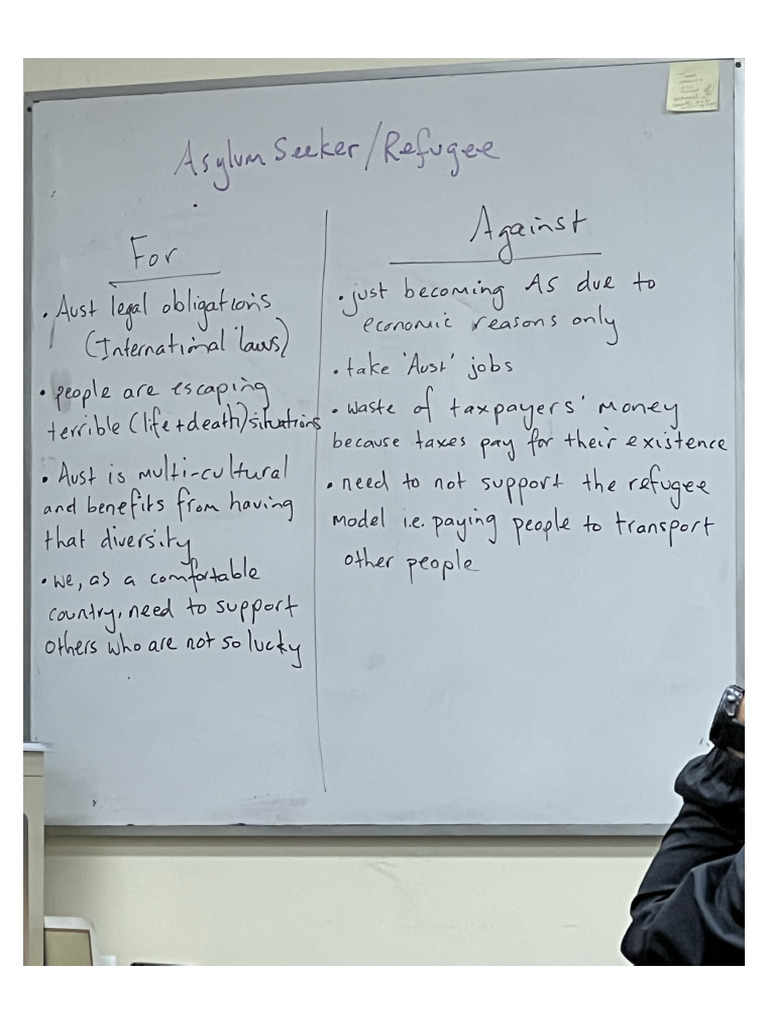 Asylum Seeker/Refugee
For
• Aust legal obligations
(International laws)
• people are escaping
terrible (life + death) situations
• Aust is multi-cultural
and benefits from having
that diversity
• we, as a comfortable
country, need to support
others who are not so lucky
Against
• just becoming AS due to
economic reasons only
• take 'Aust' jobs
• waste of taxpayers' money
because taxes pay for their existence
• need to not support the refugee
model i.e. paying people to transport
other people